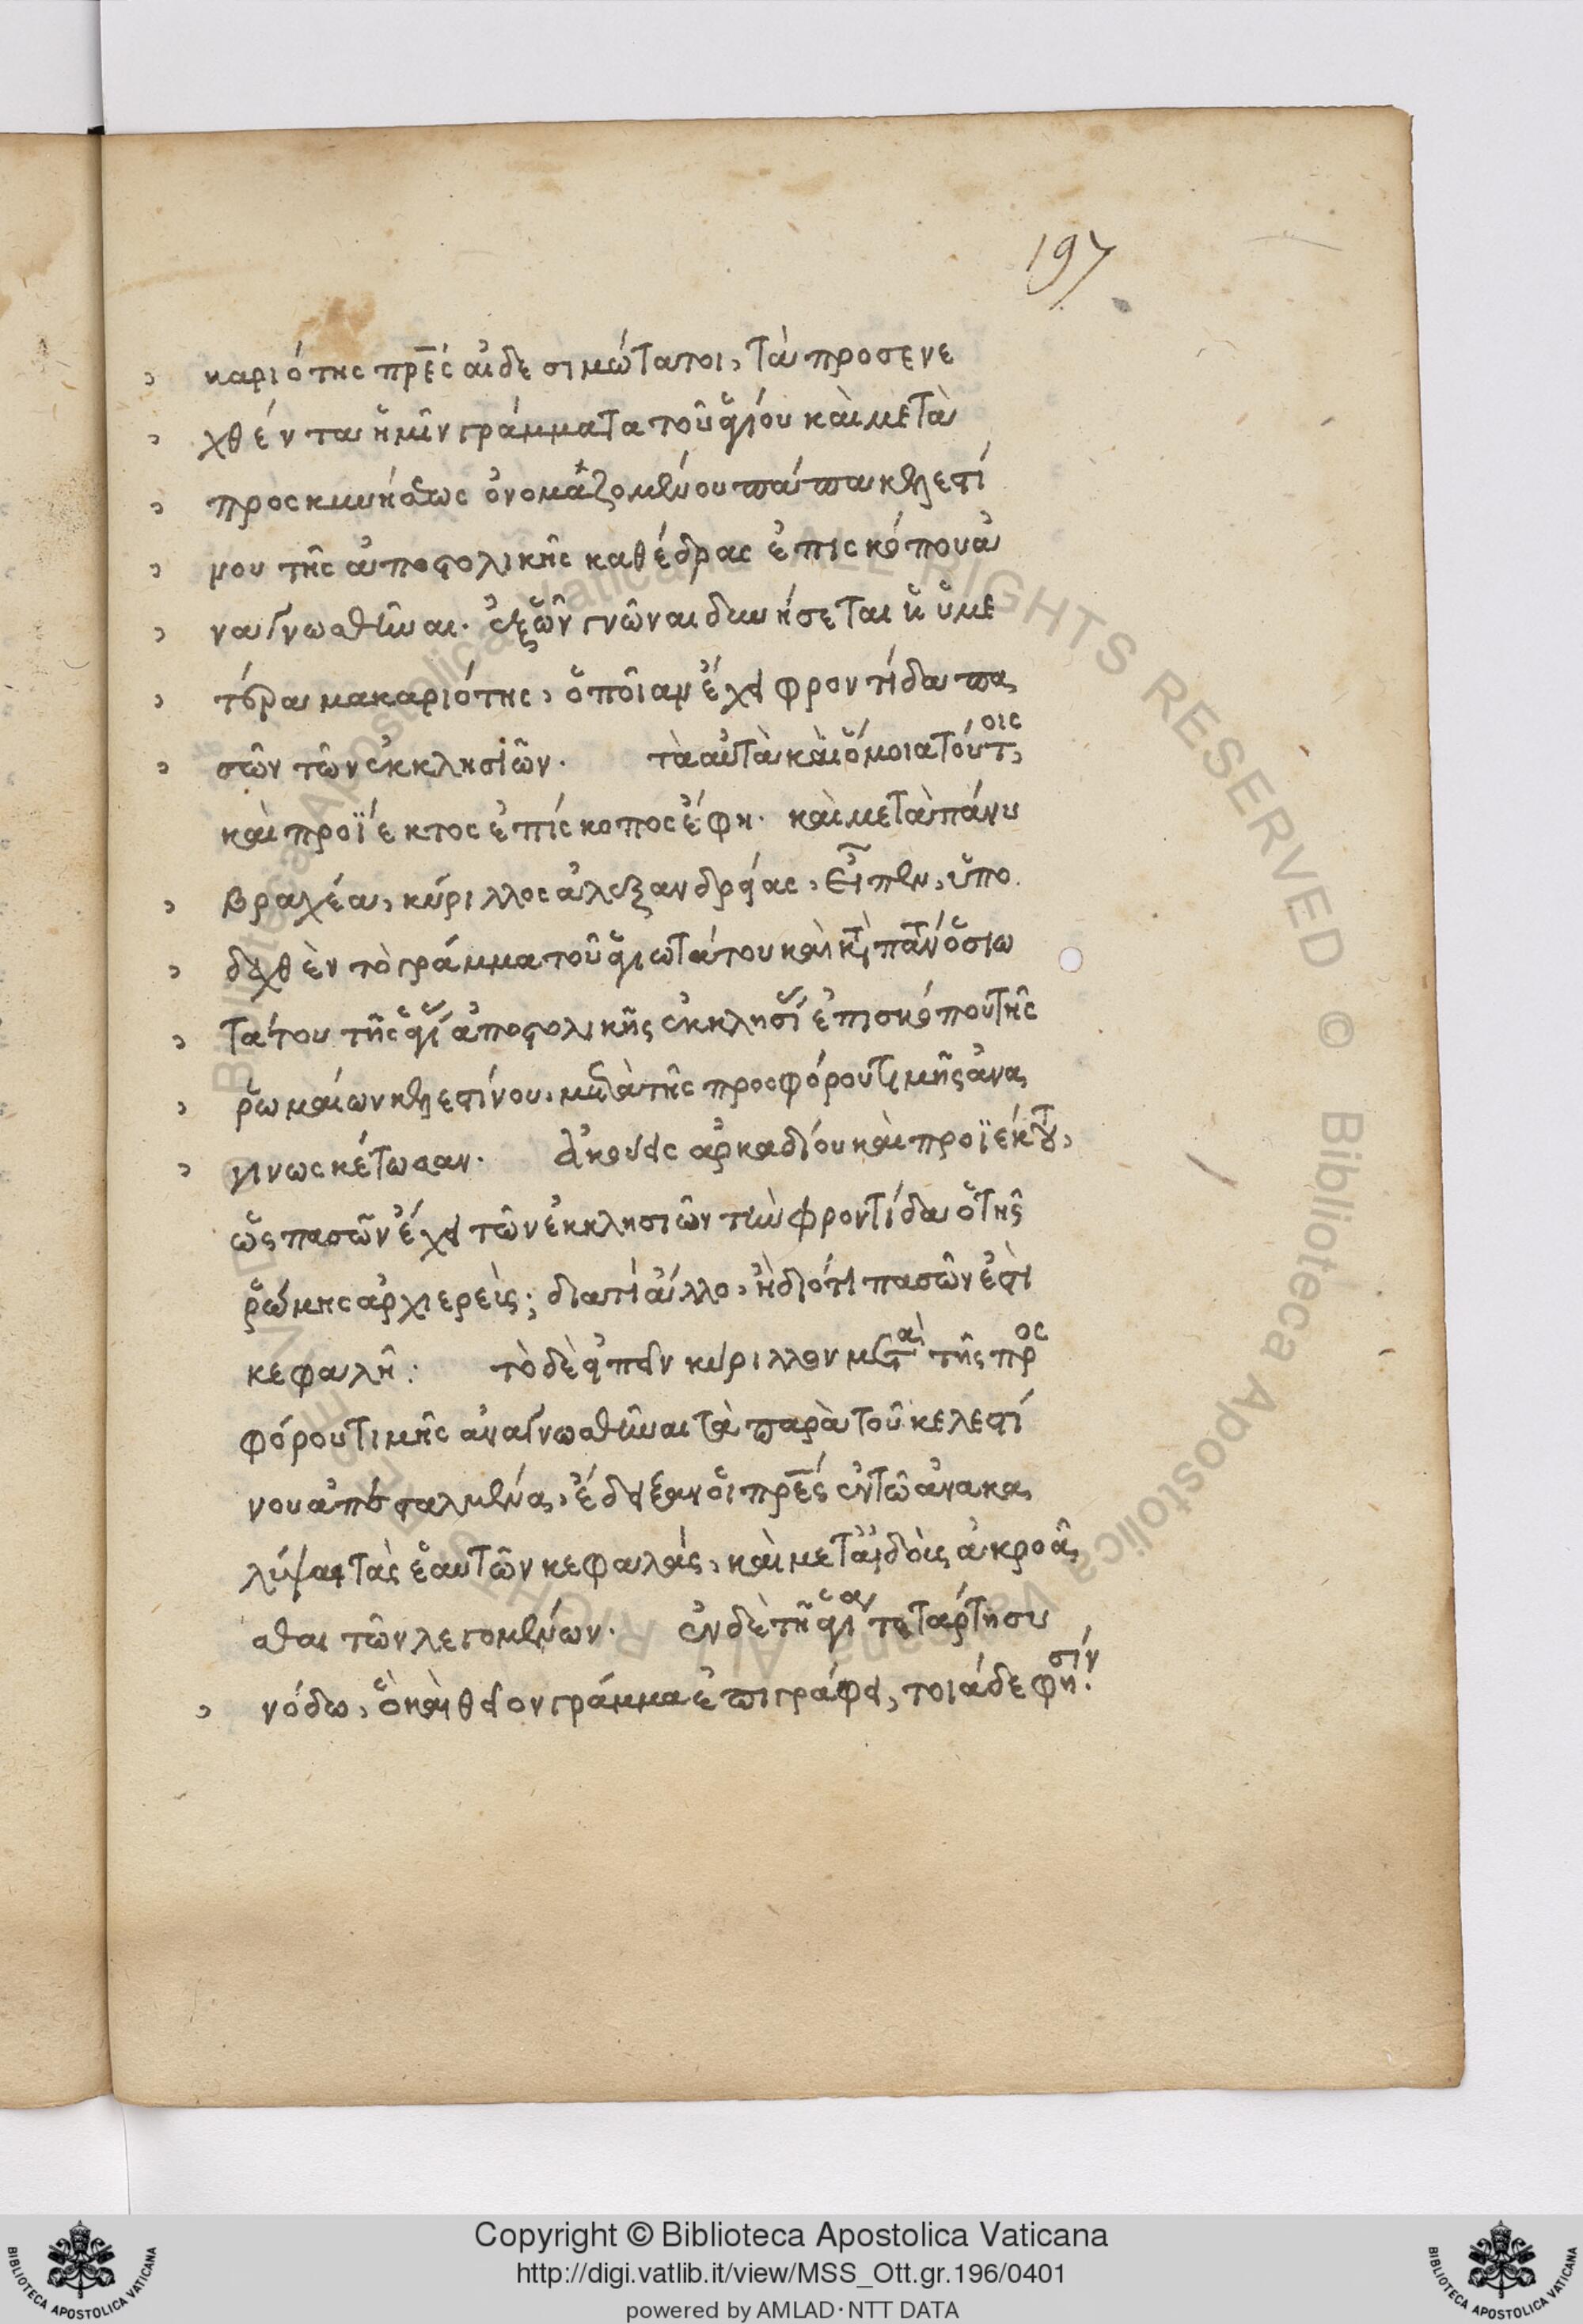 197
καριότης πρ̅ε̅ς αἰδεσιμώτατοι, τὰ προσενε
χθέντα ἡμῖν γράμματα τοῦ ἁγίου καὶ μετὰ
προσκυνήσεως ὀνομαζομένου πάπα κελεστί
νου τῆς ἀποστολικῆς καθέδρας ἐπισκόπου ἀ
ναγνωσθῆναι. ἐξ ὧν γνῶναι δυνήσεται ἡ ὑμε
τέρα μακαριότης, ὁποῖαν ἔχει φροντίδα πα
σῶν τῶν ἐκκλησιῶν. τὰ αὐτὰ καὶ ὅμοια τούτοις
καὶ προϊέκτος ἐπίσκοπος ἔφη. καὶ μετὰ πάνυ
βραχέα, κύριλλος ἀλεξανδρείας, εἶπεν, ὑπο
δειχθὲν τὸ γράμμα τοῦ ἁγιωτάτου καὶ κτ πάντ ὁσιω
τάτου τῆς ἁγί ἀποστολικῆς ἐκκλησί ἐπισκόπου τῆς
ῥωμαίων κελεστίνου, μετὰ τῆς προσφόρου τιμῆς ἀνα
γινωσκέτωσαν. ἀκούεις ἀρκαδίου καὶ προϊέκτου,
ὡς πασῶν ἔχει τῶν ἐκκλησιῶν τὴν φροντίδα ὁ τῆς
ῥώμης ἀρχιερεὺς; διατί ἄλλο, ἢ διότι πασῶν ἐστὶ
κεφαλὴ: τὸ δὲ εἰπεῖν κύριλλον μετὰ τῆς προς
φόρου τιμῆς ἀναγνωσθῆναι τὰ παρὰ τοῦ κελεστί
νου ἀπεσταλμένα, ἔδειξαν οἱ πρ̅ε̅ς ἐν τῶ ἀνακα
λύψαι τὰς ἑαυτῶν κεφαλάς, καὶ μετ αἰδοῦς ἀκροᾶ
σθαι τῶν λεγομένων. ἐν δὲ τῆ ἁγία τετάρτη συ
νόδω, ὃ καὶ θεῖον γράμμα ἐπιγράφει, τοιάδε φησίν.
Copyright © Biblioteca Apostolica Vaticana
http://digi.vatlib.it/view/MSS_Ott.gr.196/0401
powered by AMLAD · NTT DATA